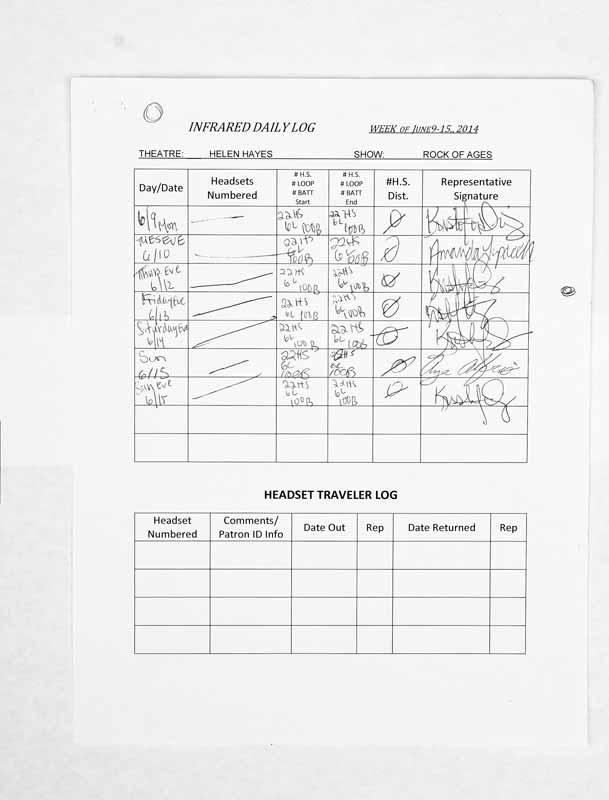 INFRARED DAILY LOG WEEK OF JUNE9-15, 2014
THEATRE: HELEN HAYES SHOW: ROCK OF AGES
Day/Date Headsets Numbered # H.S. # LOOP # BATT Start # H.S. # LOOP # BATT End #H.S. Dist. Representative Signature
6/9 Mon 22HS 6L 100B 22 HS 6L 100B Ø
TUES EVE 6/10 22HS 6L 100B 22HS 6L 100B Ø Amanda
Thurs Eve 6/12 22HS 6L 100B 22HS 6L 100B Ø
Friday Eve 6/13 22HS 6L 100B 22HS 6L 100B Ø
Saturday Eve 6/14 22HS 6L 100B 22HS 6L 100B Ø
Sun 6/15 22HS 6L 100B 22HS 6L 100B Ø
Sun Eve 6/15 22HS 6L 100B 22HS 6L 100B Ø
HEADSET TRAVELER LOG
Headset Numbered Comments/ Patron ID Info Date Out Rep Date Returned Rep